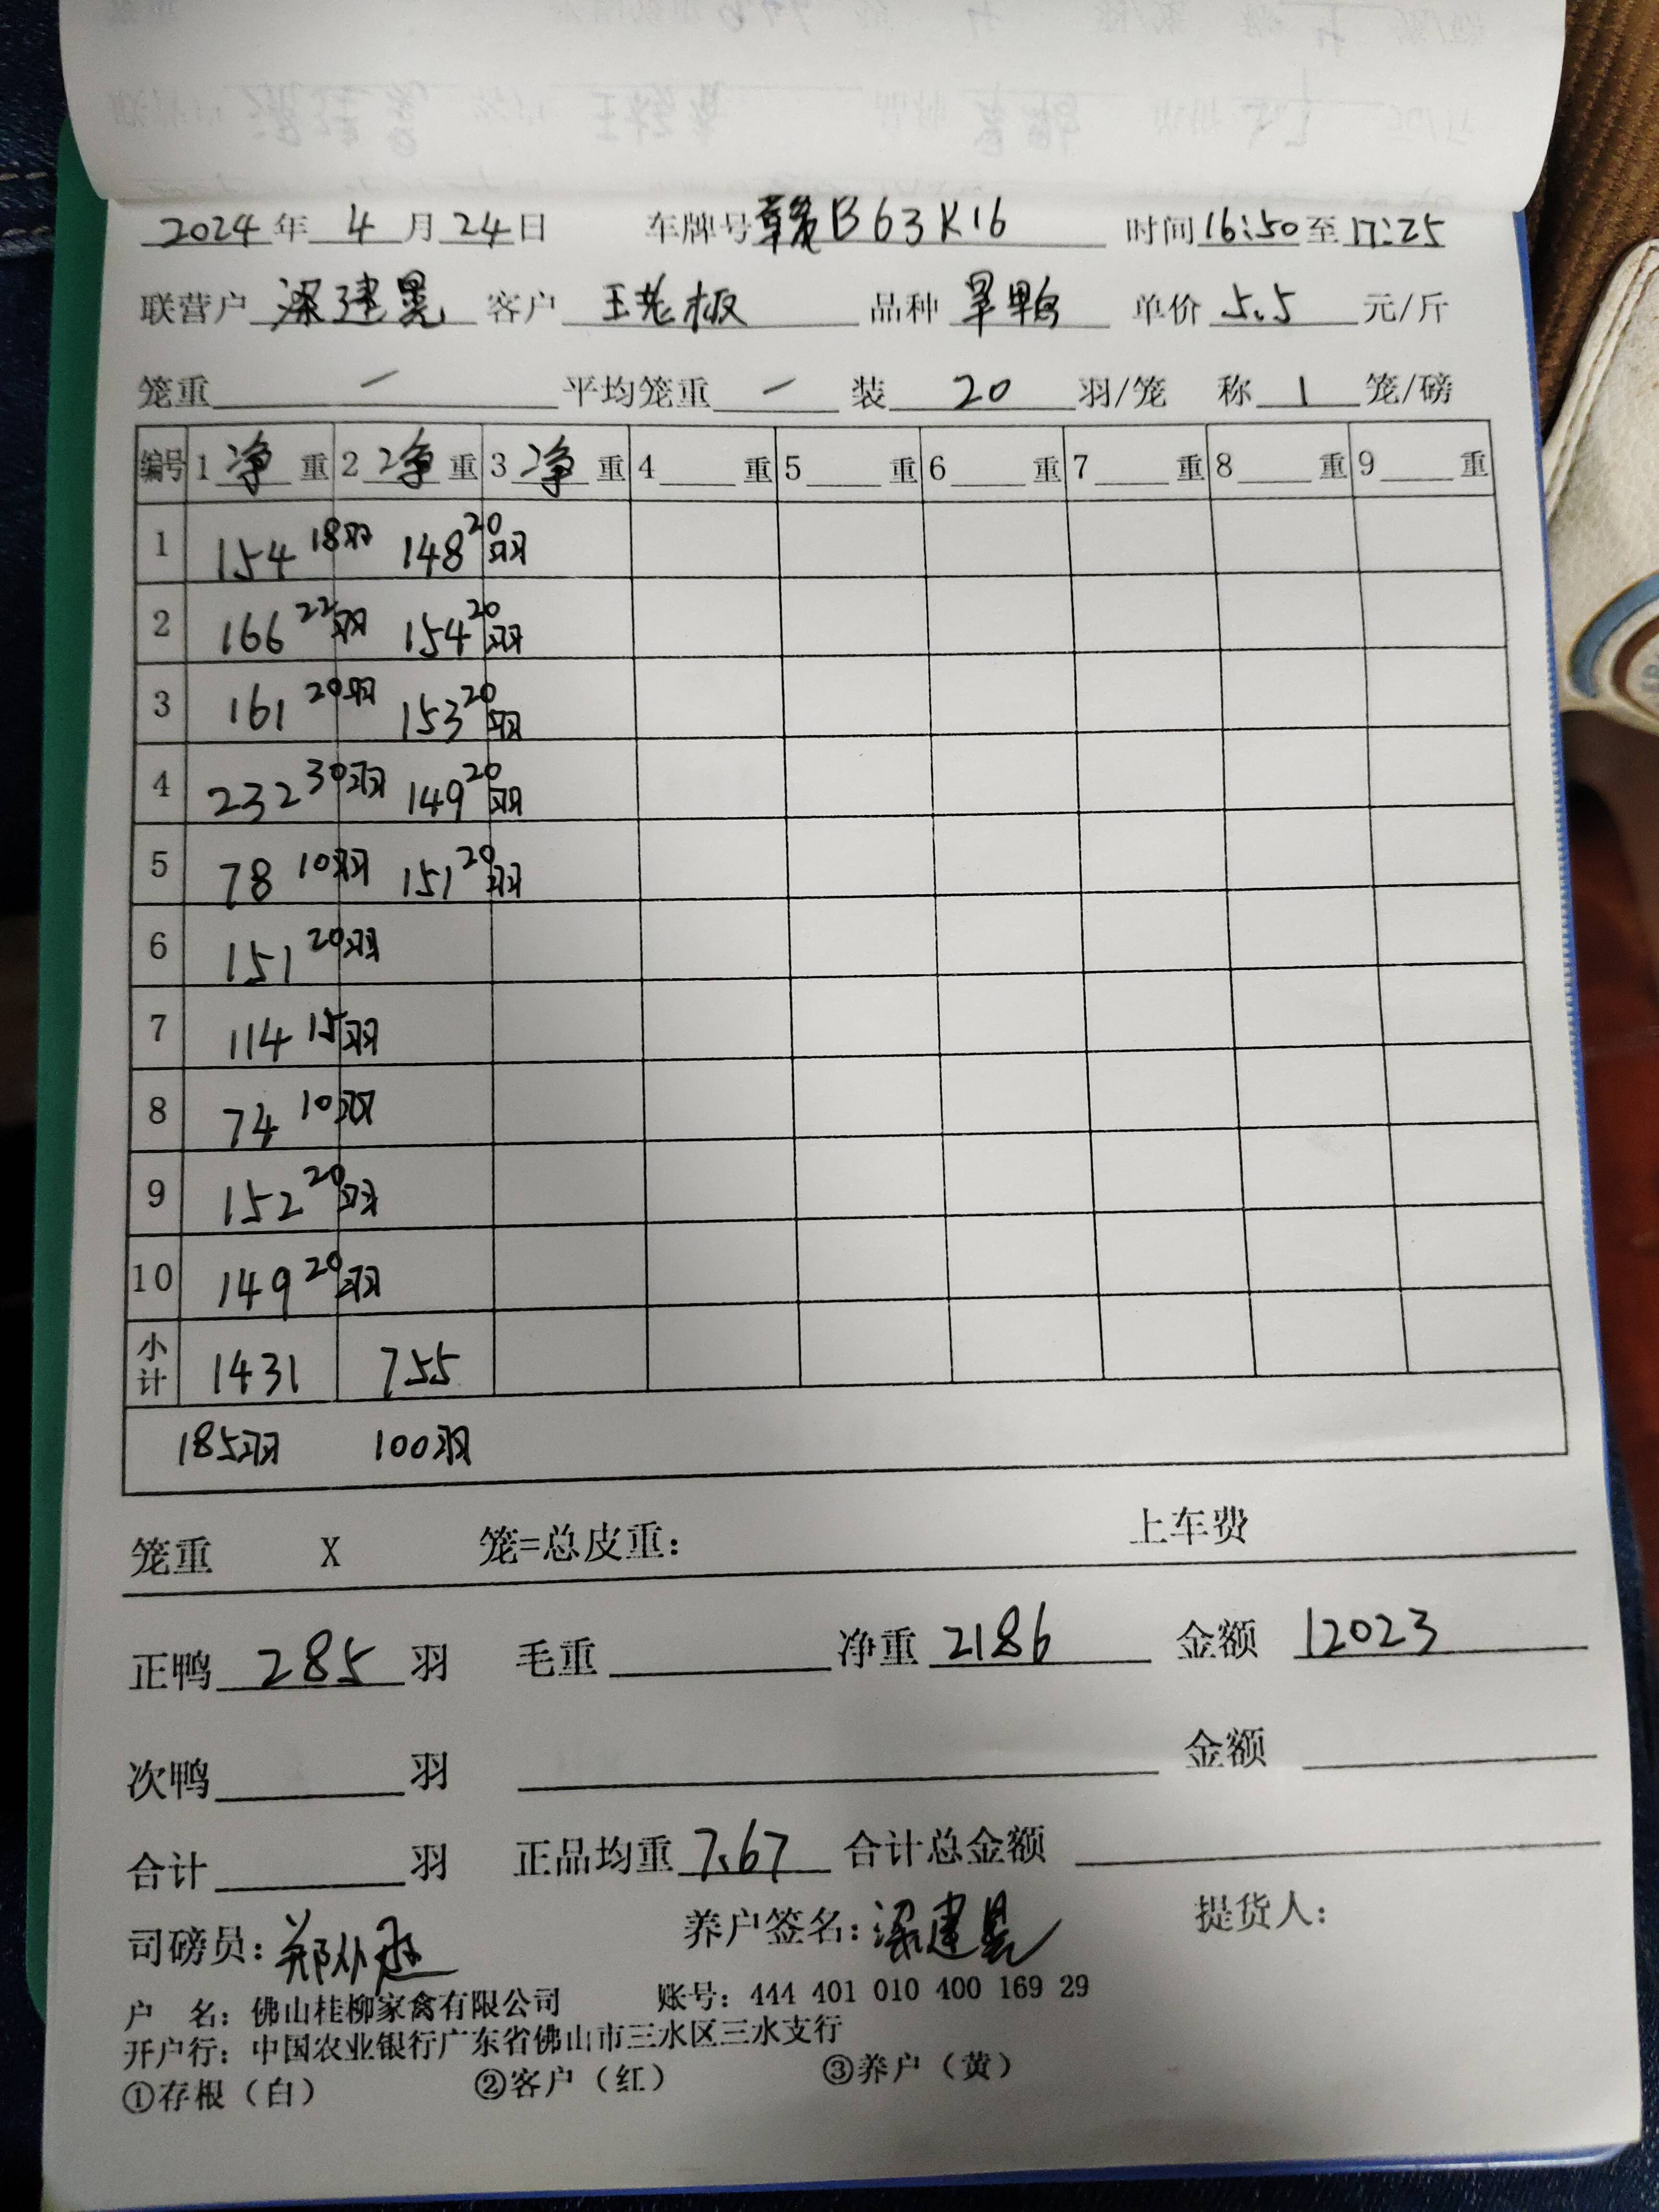 2024年 4 月 24 日 车牌号 赣B63K16 时间 16:50 至 17:25
联营户 梁建晃 客户 王老板 品种 旱鸭 单价 5.5 元/斤
笼重 一 平均笼重 一 装 20 羽/笼 称 1 笼/磅
编号 1 净 重 2 净 重 3 净 重 4 重 5 重 6 重 7 重 8 重 9 重
1 154 18羽 148 20羽
2 166 22羽 154 20羽
3 161 20羽 153 20羽
4 232 30羽 149 20羽
5 78 10羽 151 20羽
6 151 20羽
7 114 15羽
8 74 10羽
9 152 20羽
10 149 20羽
小计 1431 755
185羽 100羽
笼重 X 笼=总皮重: 上车费
正鸭 285 羽 毛重 净重 2186 金额 12023
次鸭 羽 金额
合计 羽 正品均重 7.67 合计总金额
司磅员: 养户签名: 梁建晃 提货人:
户 名: 佛山桂柳家禽有限公司 账号: 444 401 010 400 169 29
开户行: 中国农业银行广东省佛山市三水区三水支行
①存根（白） ②客户（红） ③养户（黄）